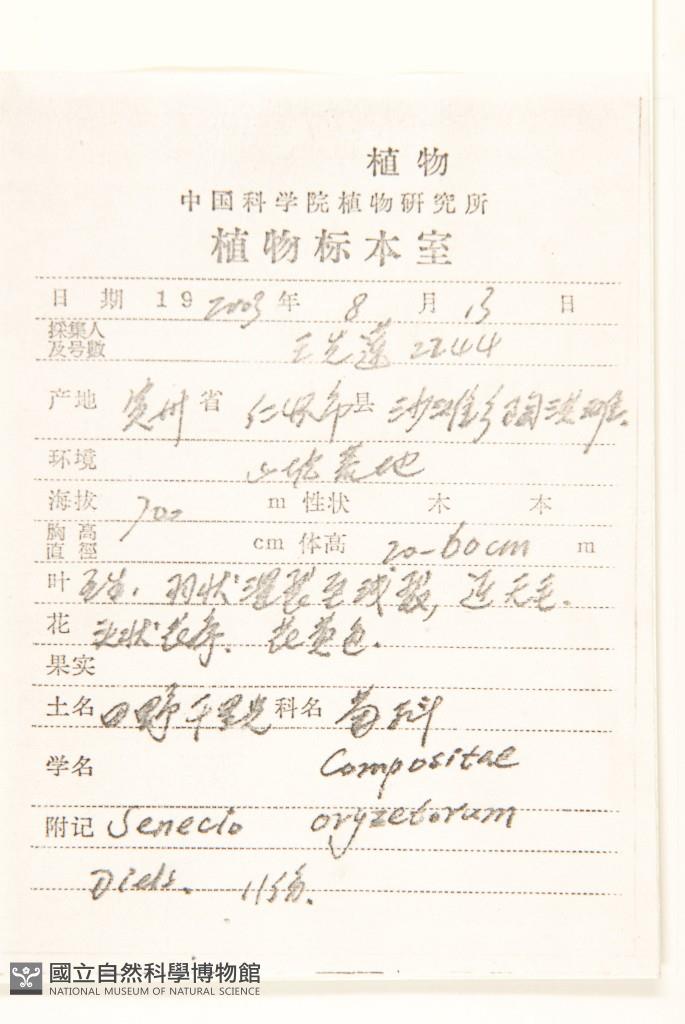 植物
中国科学院植物研究所
植物标本室
日 期 19 2003 年 8 月 13 日
採集人
及号數 王先莲 2244
产地 贵州 省 仁怀市 县 沙滩乡
环境 山坡荒地
海拔 700 m 性状 木 本
胸高
直徑 cm 体高 20-60cm m
叶 互生, 羽状 裂, 无毛.
花 头状花序. 花黄色.
果实
土名 田野千里光 科名 菊科
学名 Compositae
附记 Senecio oryzetorum
Diels. 11份.
國立自然科學博物館
NATIONAL MUSEUM OF NATURAL SCIENCE